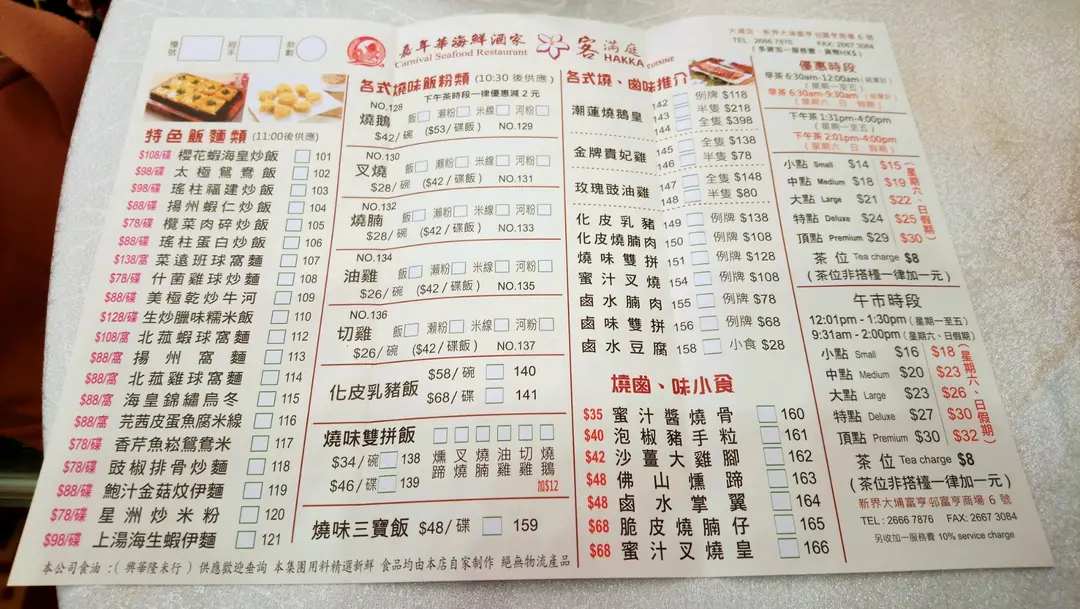 檯號
經手
人數
嘉年華海鮮酒家
Carnival Seafood Restaurant
客滿庭
HAKKA CUISINE
大埔店 新界大埔富亨邨富亨商場 6 號
TEL: 2666 7876 FAX: 2667 3084
(多謝加一服務費 / 貨幣HK$)
特色飯麵類 (11:00後供應)
$108/碟 櫻花蝦海皇炒飯 101
$98/碟 太極鴛鴦飯 102
$98/碟 瑤柱福建炒飯 103
$88/碟 揚州蝦仁炒飯 104
$78/碟 欖菜肉碎炒飯 105
$88/碟 瑤柱蛋白炒飯 106
$138/窩 菜遠班球窩麵 107
$78/碟 什菌雞球炒麵 108
$88/碟 美極乾炒牛河 109
$128/碟 生炒臘味糯米飯 110
$108/窩 北菰蝦球窩麵 112
$88/窩 揚州窩麵 113
$88/窩 北菰雞球窩麵 114
$88/窩 海皇錦繡烏冬 115
$88/窩 芫茜皮蛋魚腐米線 116
$78/碟 香芹魚崧鴛鴦米 117
$78/碟 豉椒排骨炒麵 118
$88/碟 鮑汁金菇炆伊麵 119
$78/碟 星洲炒米粉 120
$98/碟 上湯海生蝦伊麵 121
各式燒味飯粉類 (10:30 後供應)
下午茶時段一律優惠減 2 元
NO.128
燒鵝 飯 瀨粉 米線 河粉
$42/ 碗 ($53/ 碟飯) NO.129
NO.130
叉燒 飯 瀨粉 米線 河粉
$28/ 碗 ($42 / 碟飯) NO.131
NO.132
燒腩 飯 瀨粉 米線 河粉
$28/ 碗 ($42/ 碟飯) NO.133
NO.134
油雞 飯 瀨粉 米線 河粉
$26/ 碗 ($42 / 碟飯) NO.135
NO.136
切雞 飯 瀨粉 米線 河粉
$26/ 碗 ($42 / 碟飯) NO.137
化皮乳豬飯 $58/ 碗 140
$68/ 碟 141
燒味雙拼飯
$34 / 碗 138
$46 / 碟 139
燻蹄 叉燒 燒腩 油雞 切雞 燒鵝
加$12
燒味三寶飯 $48/ 碟 159
各式燒、鹵味推介
潮蓮燒鵝皇
142 例牌 $118
143 半隻 $218
144 全隻 $398
金牌貴妃雞
145 全隻 $138
146 半隻 $78
玫瑰豉油雞
147 全隻 $148
148 半隻 $80
化皮乳豬 149 例牌 $138
化皮燒腩肉 150 例牌 $108
燒味雙拼 151 例牌 $128
蜜汁叉燒 154 例牌 $108
鹵水腩肉 155 例牌 $78
鹵味雙拼 156 例牌 $68
鹵水豆腐 158 小食 $28
燒鹵、味小食
$35 蜜汁醬燒骨 160
$40 泡椒豬手粒 161
$42 沙薑大雞腳 162
$48 佛山燻蹄 163
$48 鹵水掌翼 164
$68 脆皮燒腩仔 165
$68 蜜汁叉燒皇 166
優惠時段
學茶 6:30am-12:00am
(星期一至五)
學茶 6:30am-9:30am
(星期六 日 假期)
下午茶 1:31pm-4:00pm
(星期一至五)
下午茶 2:01pm-4:00pm
(星期六 日 假期)
小點 Small $14 $15
中點 Medium $18 $19
大點 Large $21 $22
特點 Deluxe $24 $25
頂點 Premium $29 $30
(星期六、日假期)
茶位 Tea charge $8
(茶位非搭檯一律加一元)
午市時段
12:01pm - 1:30pm (星期一至五)
9:31am - 2:00pm (星期六、日假期)
小點 Small $16 $18
中點 Medium $20 $23
大點 Large $23 $26
特點 Deluxe $27 $30
頂點 Premium $30 $32
(星期六、日假期)
茶位 Tea charge $8
(茶位非搭檯一律加一元)
新界大埔富亨邨富亨商場 6 號
TEL : 2666 7876 FAX: 2667 3084
另收加一服務費 10% service charge
本公司食油 :( 興華隆米行 ) 供應歡迎垂詢 本集團用料精選新鮮 食品均由本店自家制作 絕無物流產品